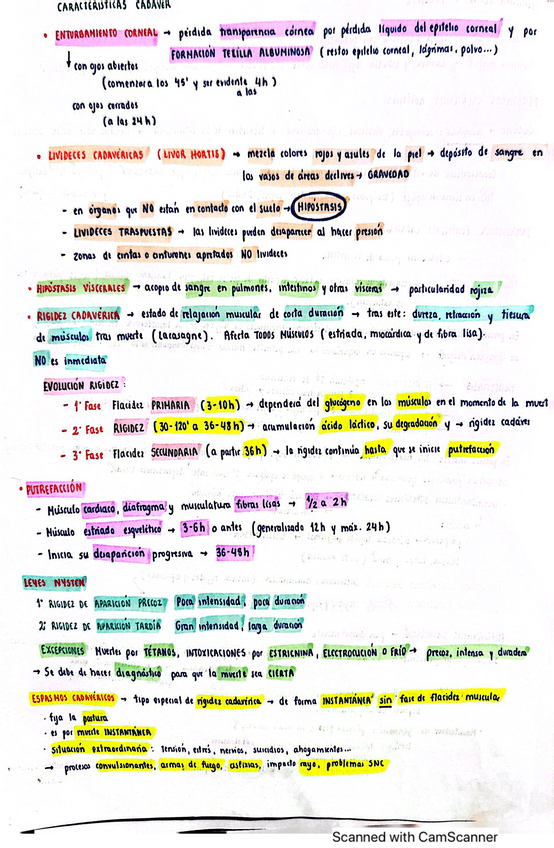 CARACTERÍSTICAS CADÁVER
• ENTURBIAMIENTO CORNEAL → pérdida transparencia córnea por pérdida líquido del epitelio corneal y por
FORMACIÓN TELILLA ALBUMINOSA (restos epitelio corneal, lágrimas, polvo...)
↓ con ojos abiertos
(comenzara los 45' y ser evidente a las 4h)
con ojos cerrados
(a las 24h)
• LIVIDECES CADAVÉRICAS (LIVOR MORTIS) → mezcla colores rojos y azules de la piel → depósito de sangre en
los vasos de áreas declives → GRAVEDAD
- en órganos que NO están en contacto con el suelo → HIPÓSTASIS
- LIVIDECES TRASPUESTAS → las livideces pueden desaparecer al hacer presión
- zonas de cintas o cinturones apretados NO livideces
• HIPÓSTASIS VISCERALES → acopio de sangre en pulmones, intestinos y otras vísceras → particularidad rojiza
• RIGIDEZ CADAVÉRICA → estado de relajación muscular de corta duración → tras este: dureza, retracción y tiesura
de músculos tras muerte (Lacassagne). Afecta TODOS MÚSCULOS (estriada, miocárdica y de fibra lisa).
NO es inmediata
EVOLUCIÓN RIGIDEZ:
- 1ª Fase Flacidez PRIMARIA (3-10h) → dependerá del glucógeno en los músculos en el momento de la muert
- 2ª Fase RIGIDEZ (30-120' a 36-48h) → acumulación ácido láctico, su degradación y → rigidez cadáver
- 3ª Fase Flacidez SECUNDARIA (a partir 36h) → la rigidez continúa hasta que se inicie putrefacción
• PUTREFACCIÓN
- Músculo cardiaco, diafragma y musculatura fibras lisas → 1/2 a 2h
- Músculo estriado esquelético → 3-6h o antes (generalizado 12h y máx. 24h)
- Inicia su desaparición progresiva → 36-48h
LEYES NYSTEN
1ª RIGIDEZ DE APARICIÓN PRECOZ Poca intensidad, poca duración
2ª RIGIDEZ DE APARICIÓN TARDÍA Gran intensidad, larga duración
EXCEPCIONES Muertes por TÉTANOS, INTOXICACIONES por ESTRICNINA, ELECTROCUCIÓN O FRÍO → precoz, intensa y duradera
→ Se debe de hacer diagnóstico para que la muerte sea CIERTA
ESPASMOS CADAVÉRICOS → tipo especial de rigidez cadavérica → de forma INSTANTÁNEA sin fase de flacidez muscular
· fija la postura
· es por muerte INSTANTÁNEA
· situación extraordinaria: tensión, estrés, nervios, suicidios, ahogamientos...
→ procesos convulsionantes, armas de fuego, asfixias, impacto rayo, problemas SNC
Scanned with CamScanner